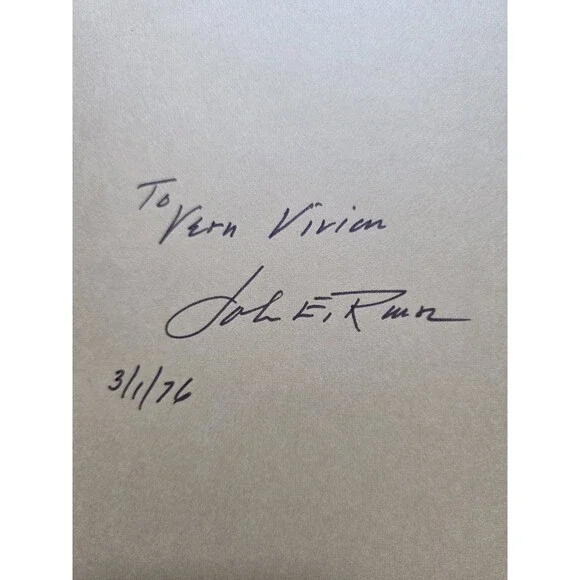 To
Vern Vivian
John E.
3/1/76